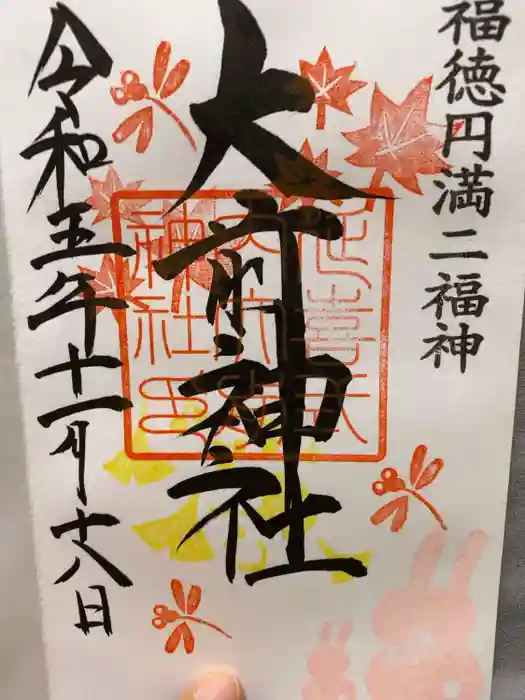 福徳円満二福神
大前神社
延喜式内大前神社印
令和五年十一月十八日